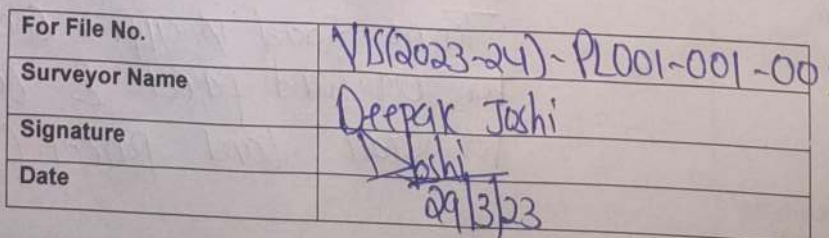 For File No. VIS(2023-24)-PL001-001-00
Surveyor Name Deepak Joshi
Signature DJoshi
Date 29/3/23